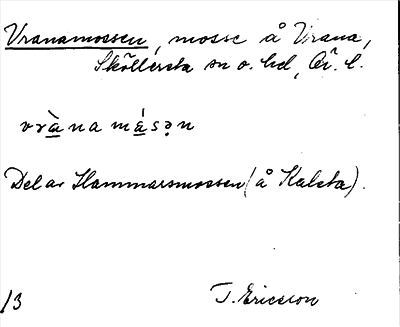 Vranamossen, mosse å Vrana,
Sköllersta sn o. hd, Ör. l.
vrànamásən
Del av Hammarsmossen (å Kalsta).
/3 T. Ericsson